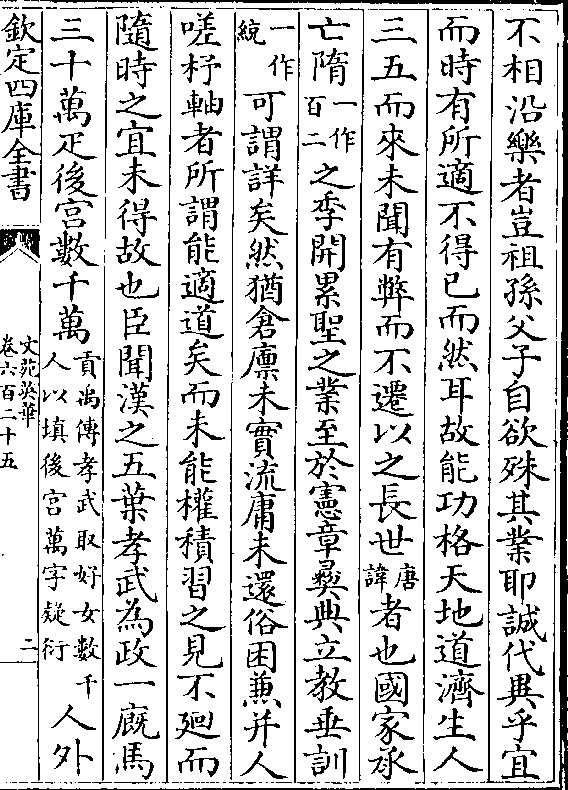 不相沿樂者豈祖孫父子自欲殊其業耶誠代異乎宜
而時有所適不得已而然耳故能功格天地道濟生人
三五而來未聞有弊而不遷以之長世唐諱者也國家承
亡隋一作百二之季開累聖之業至於憲章彛典立教垂訓
一作統可謂詳矣然猶倉廪未實流庸未還俗困兼并人
嗟杼軸者所謂能適道矣而未能權積習之見不廻而
隨時之宜未得故也臣聞漢之五葉孝武為政一廐馬
三十萬疋後宫數千萬貢禹傳孝武取好女數千人以填後宫萬字疑衍人外
欽定四庫全書
文苑英華
卷六百二十五
二